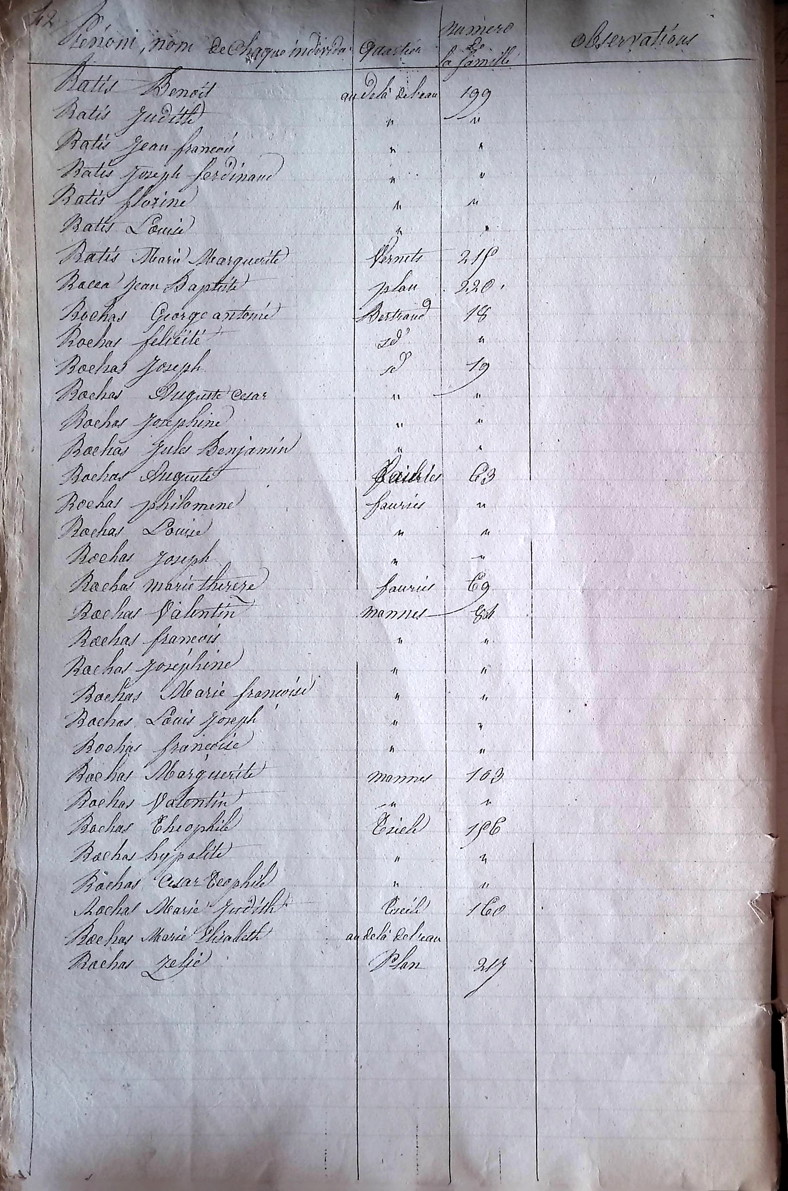 42
Prénoni, nom de Chaque individu Quartier numero de la famille observations
Ratis Benoit au delà de l'eau 199
Ratis Judith " "
Ratis Jean francois " "
Ratis Joseph ferdinand " "
Ratis florine " "
Ratis Louise " "
Ratis Marie Marguerite Vernets
Jean Baptiste plan 220
Rochas George antoine Bertrand 18
Rochas felicité id "
Rochas Joseph id 19
Rochas Auguste Cesar " "
Rochas Josephine " "
Rochas Jules Benjamin " "
Rochas Auguste 63
Rochas philomene fauries "
Rochas Louise " "
Rochas Joseph " "
Rochas marie therese fauries 69
Rochas Valentin mannes 84
Rochas francois " "
Rochas Joséphine " "
Rochas Marie francoise " "
Rochas Louis Joseph " "
Rochas francoise " "
Rochas Marguerite mannes 103
Rochas Valentin " "
Rochas Theophile
Rochas hypolite " "
Rochas Cesar Teophile " "
Rochas Marie Judith 160
Rochas Marie Elisabeth au delà de l'eau
Rochas Zelie Plan 217